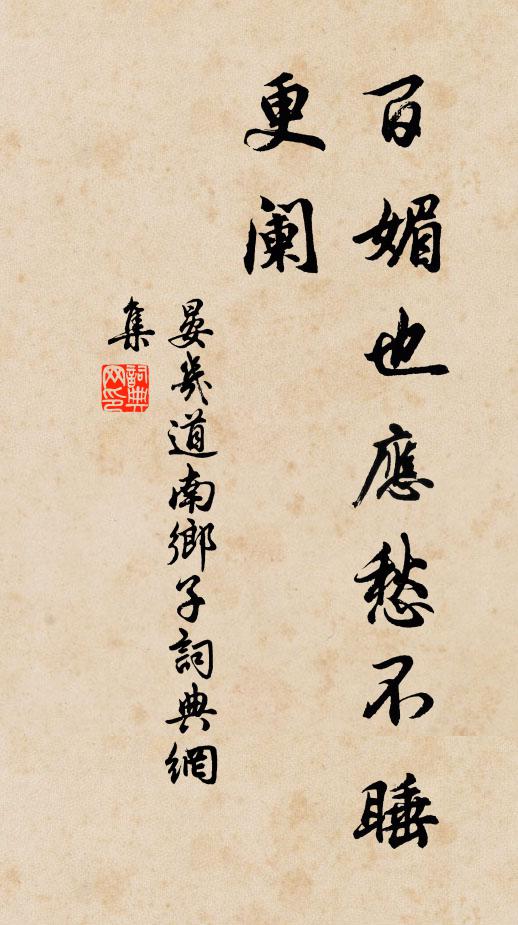 百媚也應愁不睡
更阑
晏幾道南鄉子詞典網
集
詞典
网印